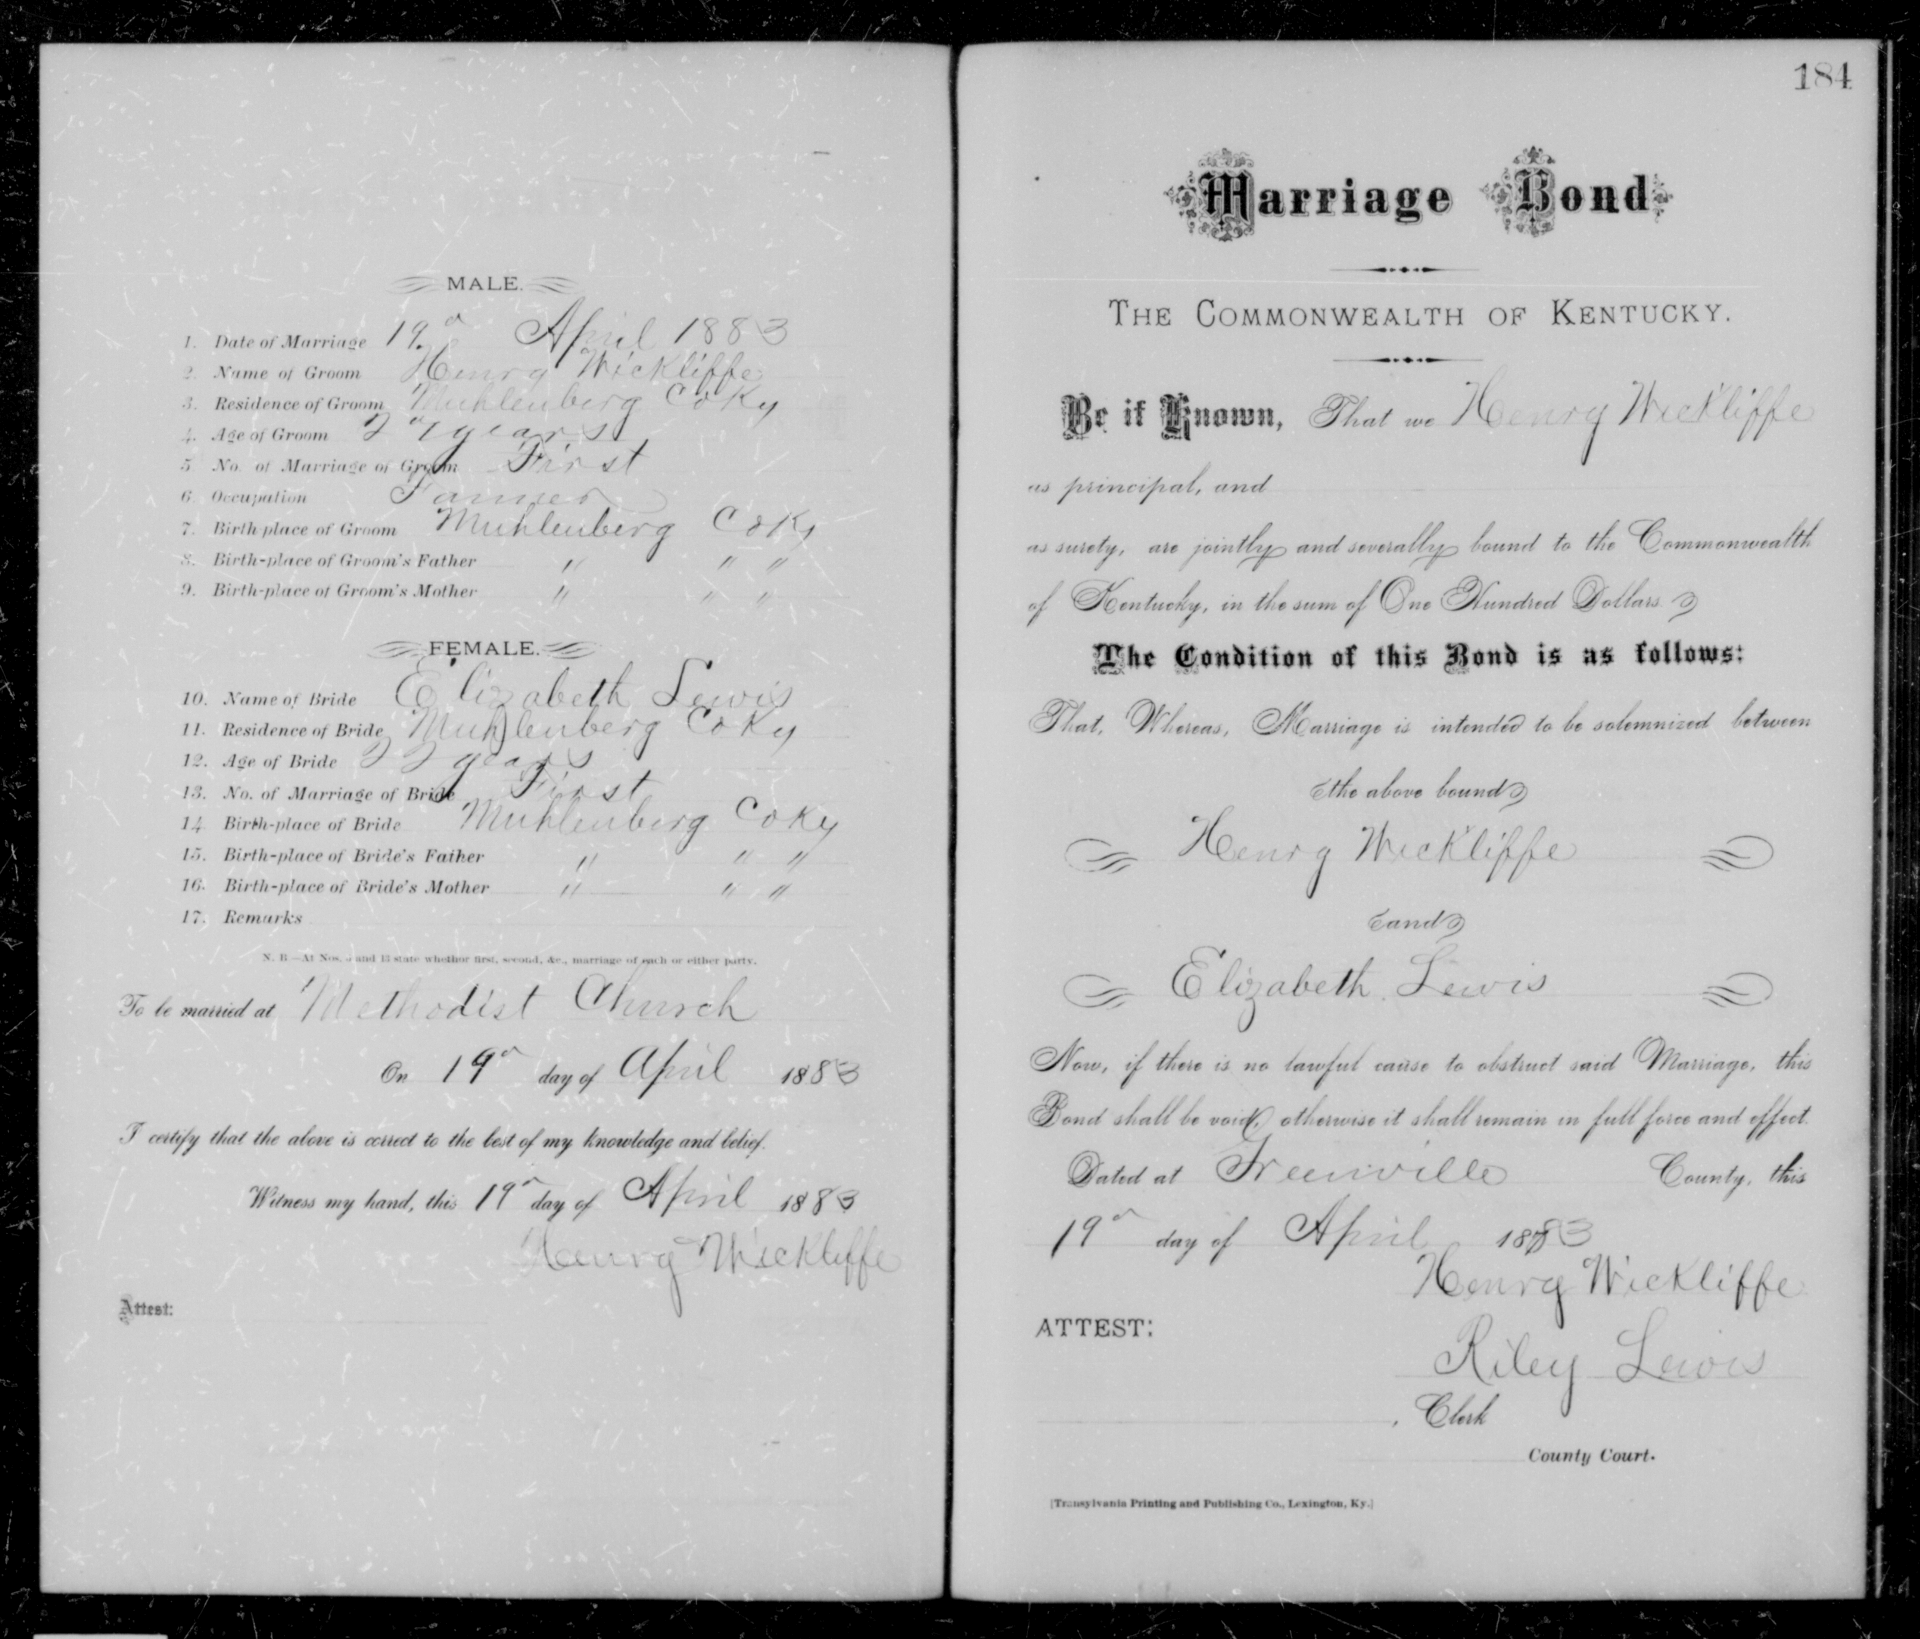 MALE.
1. Date of Marriage 19" April 1883
2. Name of Groom Henry Wickliffe
3. Residence of Groom Muhlenberg Co Ky
4. Age of Groom years
5. No. of Marriage of Groom First
6. Occupation Farmer
7. Birth-place of Groom Muhlenberg Co Ky
8. Birth-place of Groom's Father " " "
9. Birth-place of Groom's Mother " " "
FEMALE.
10. Name of Bride Elizabeth Lewis
11. Residence of Bride Muhlenberg Co Ky
12. Age of Bride 22 years
13. No. of Marriage of Bride First
14. Birth-place of Bride Muhlenberg Co Ky
15. Birth-place of Bride's Father " " "
16. Birth-place of Bride's Mother " " "
17. Remarks
N. B.—At Nos. 5 and 13 state whether first, second, &c., marriage of each or either party.
To be married at Methodist Church
On 19" day of April 1883
I certify that the above is correct to the best of my knowledge and belief.
Witness my hand, this 19" day of April 1883
Henry Wickliffe
Attest:
184
Marriage Bond
THE COMMONWEALTH OF KENTUCKY.
Be it Known, That we Henry Wickliffe
as principal, and
as surety, are jointly and severally bound to the Commonwealth
of Kentucky, in the sum of One Hundred Dollars.
The Condition of this Bond is as follows:
That, Whereas, Marriage is intended to be solemnized between
the above bound
Henry Wickliffe
and
Elizabeth Lewis
Now, if there is no lawful cause to obstruct said Marriage, this
Bond shall be void, otherwise it shall remain in full force and effect.
Dated at Greenville County, this
19" day of April 1883
Henry Wickliffe
ATTEST:
Riley Lewis
, Clerk
County Court.
[Transylvania Printing and Publishing Co., Lexington, Ky.]